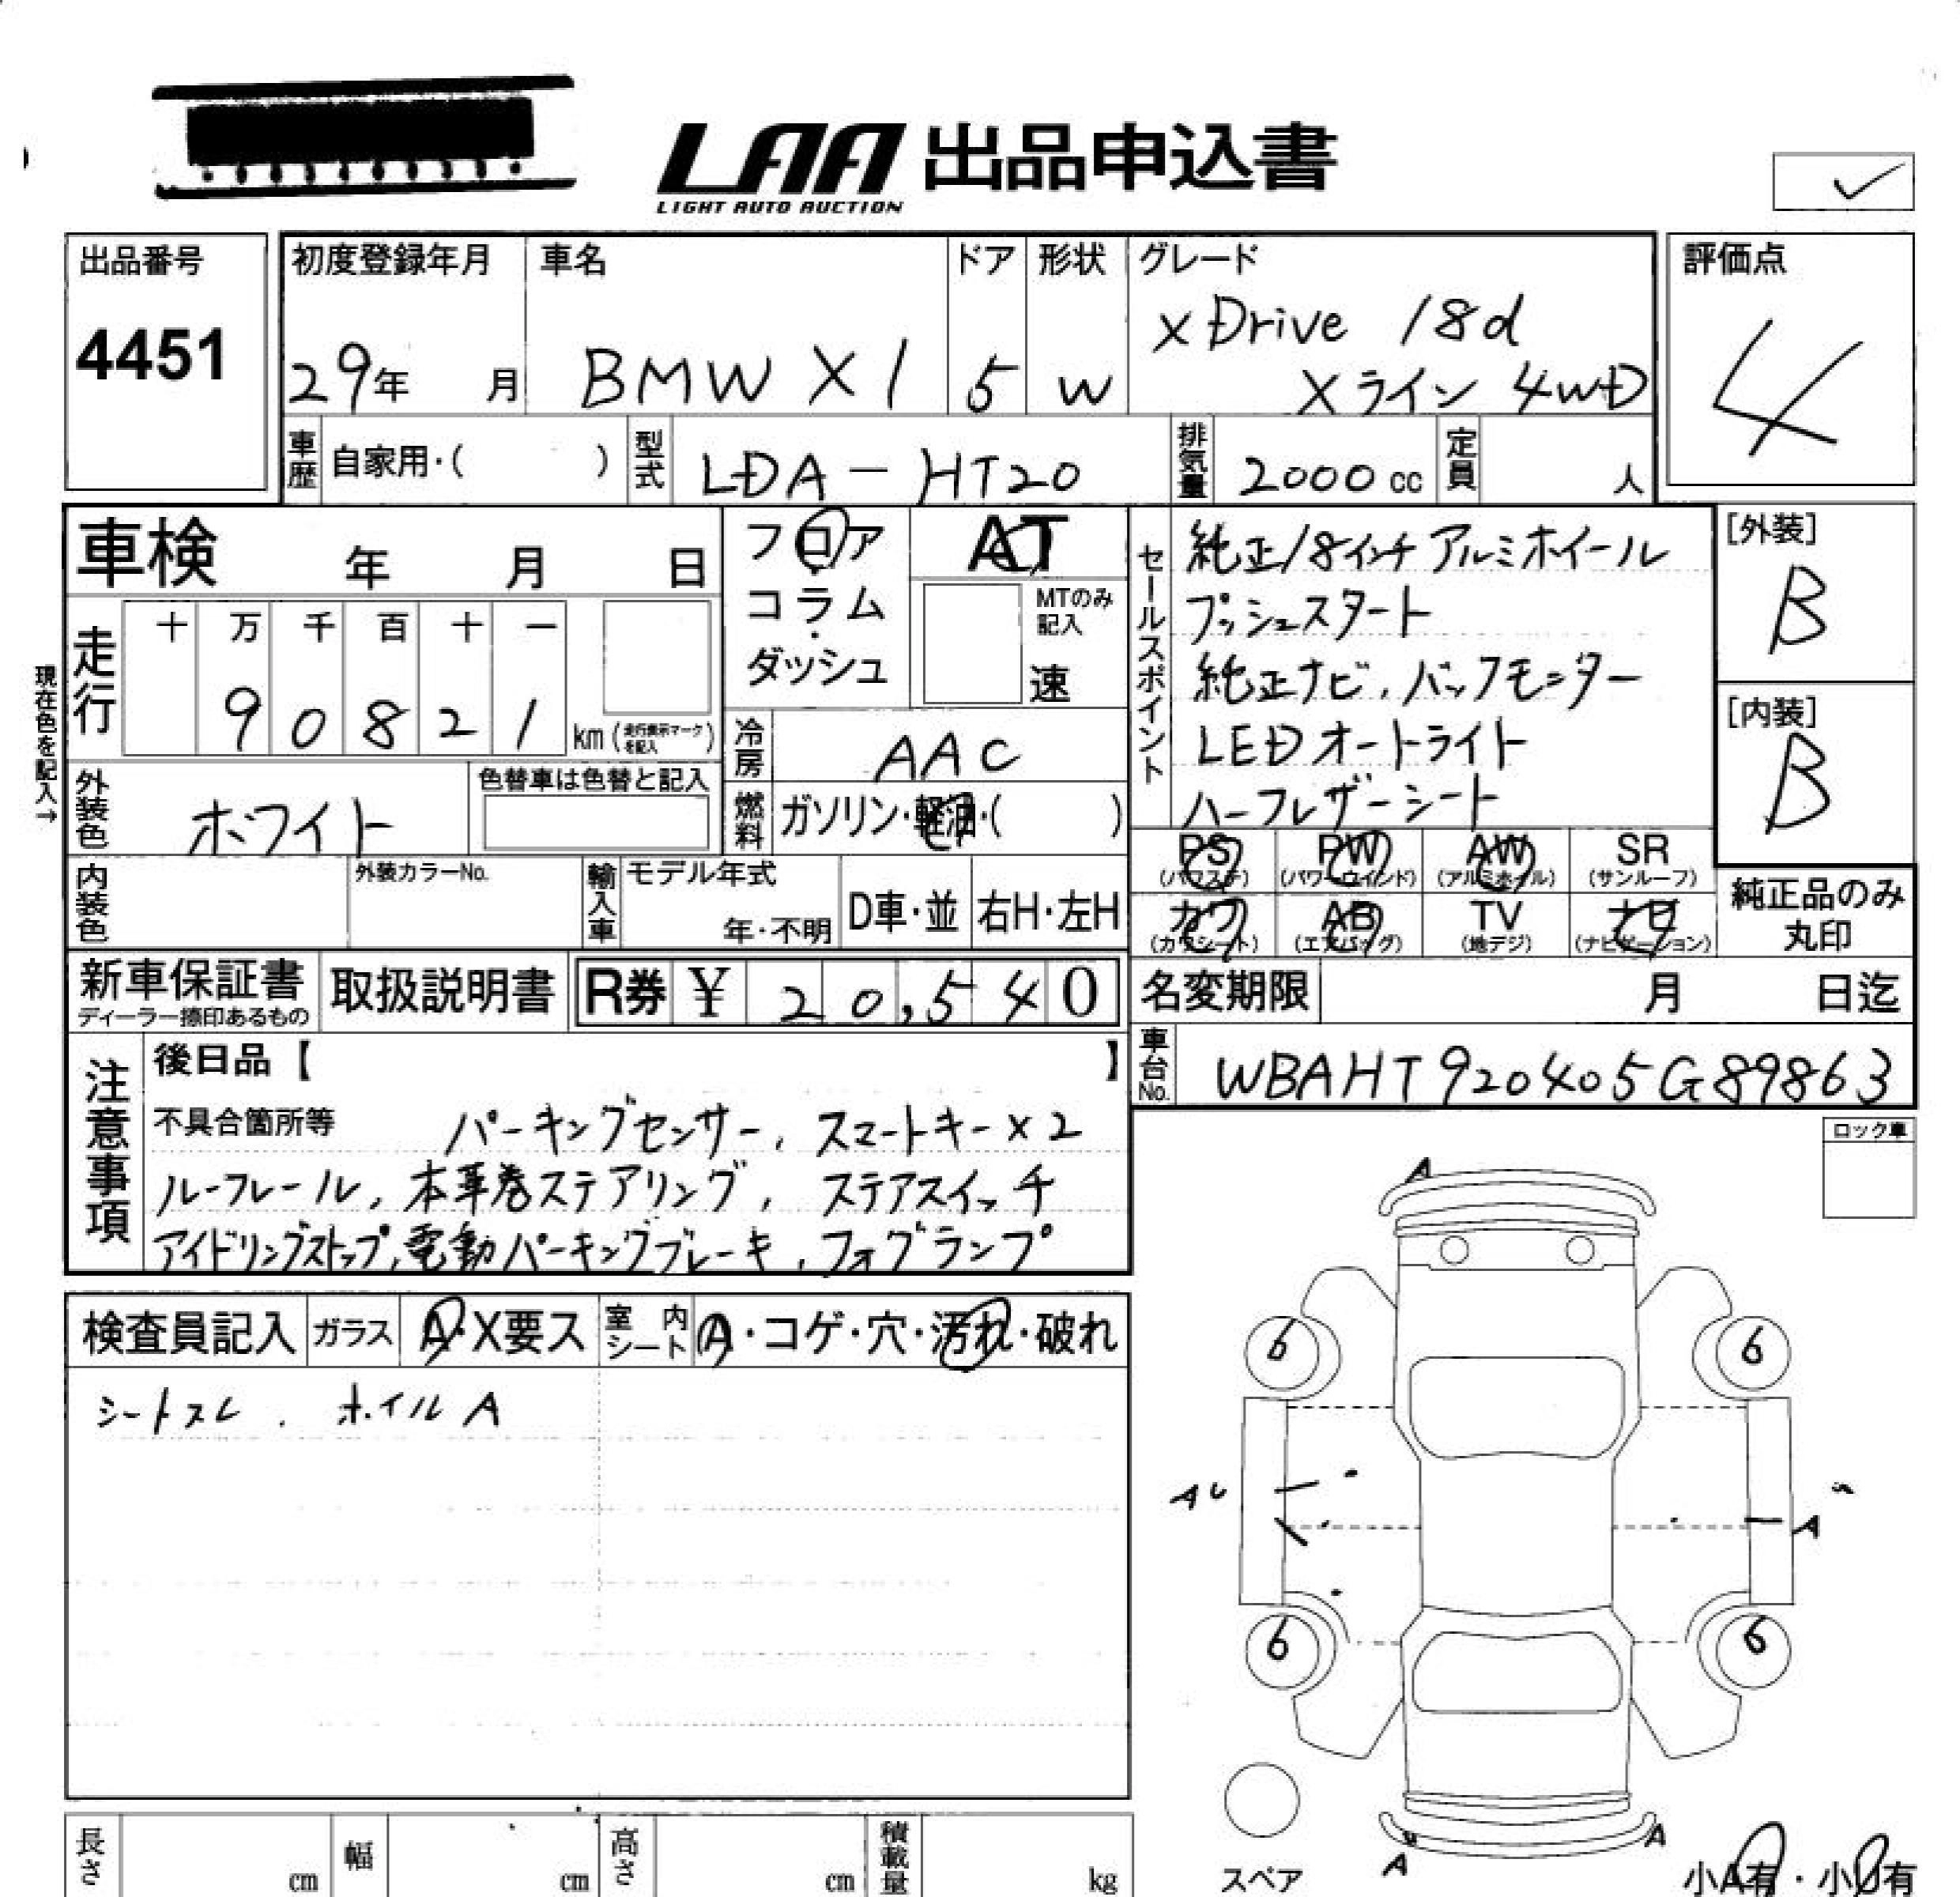 LAA 出品申込書
LIGHT AUTO AUCTION
出品番号
4451
初度登録年月
29年 月
車名
BMW X1
ドア
5
形状
W
グレード
X Drive 18d
Xライン 4WD
評価点
4
車歴 自家用・( )
型式 LDA-HT20
排気量 2000 cc
定員 人
車検 年 月 日
フロア
コラム
ダッシュ
AT
MTのみ
記入
速
走行
十 万 千 百 十 一
9 0 8 2 1
km (走行表示マークを記入)
現在色を記入→
外装色 ホワイト
色替車は色替と記入
冷房 AAC
燃料 ガソリン・軽油・( )
内装色
外装カラーNo.
輸入車
モデル年式
年・不明
D車・並
右H・左H
セールスポイント
純正18インチ アルミホイール
プッシュスタート
純正ナビ、バックモニター
LED オートライト
ハーフレザーシート
[外装]
B
[内装]
B
PS (パワステ)
PW (パワーウィンド)
AW (アルミホイル)
SR (サンルーフ)
カワ (カワシート)
AB (エアバッグ)
TV (地デジ)
ナビ (ナビゲーション)
純正品のみ
丸印
新車保証書
ディーラー捺印あるもの
取扱説明書
R券 ¥ 20,540
名変期限 月 日迄
車台No. WBAHT920405G89863
注意事項
後日品【 】
不具合箇所等 パーキングセンサー、スマートキー×2
ルーフレール、本革巻ステアリング、ステアスイッチ
アイドリングストップ、電動パーキングブレーキ、フォグランプ
ロック車
検査員記入
ガラス A・X要ス
室内シート A・コゲ・穴・汚れ・破れ
シートスレ、ホイルA
A
6 6
A A
6 6
A A
スペア
小A有・小U有
長さ cm
幅 cm
高さ cm
積載量 kg